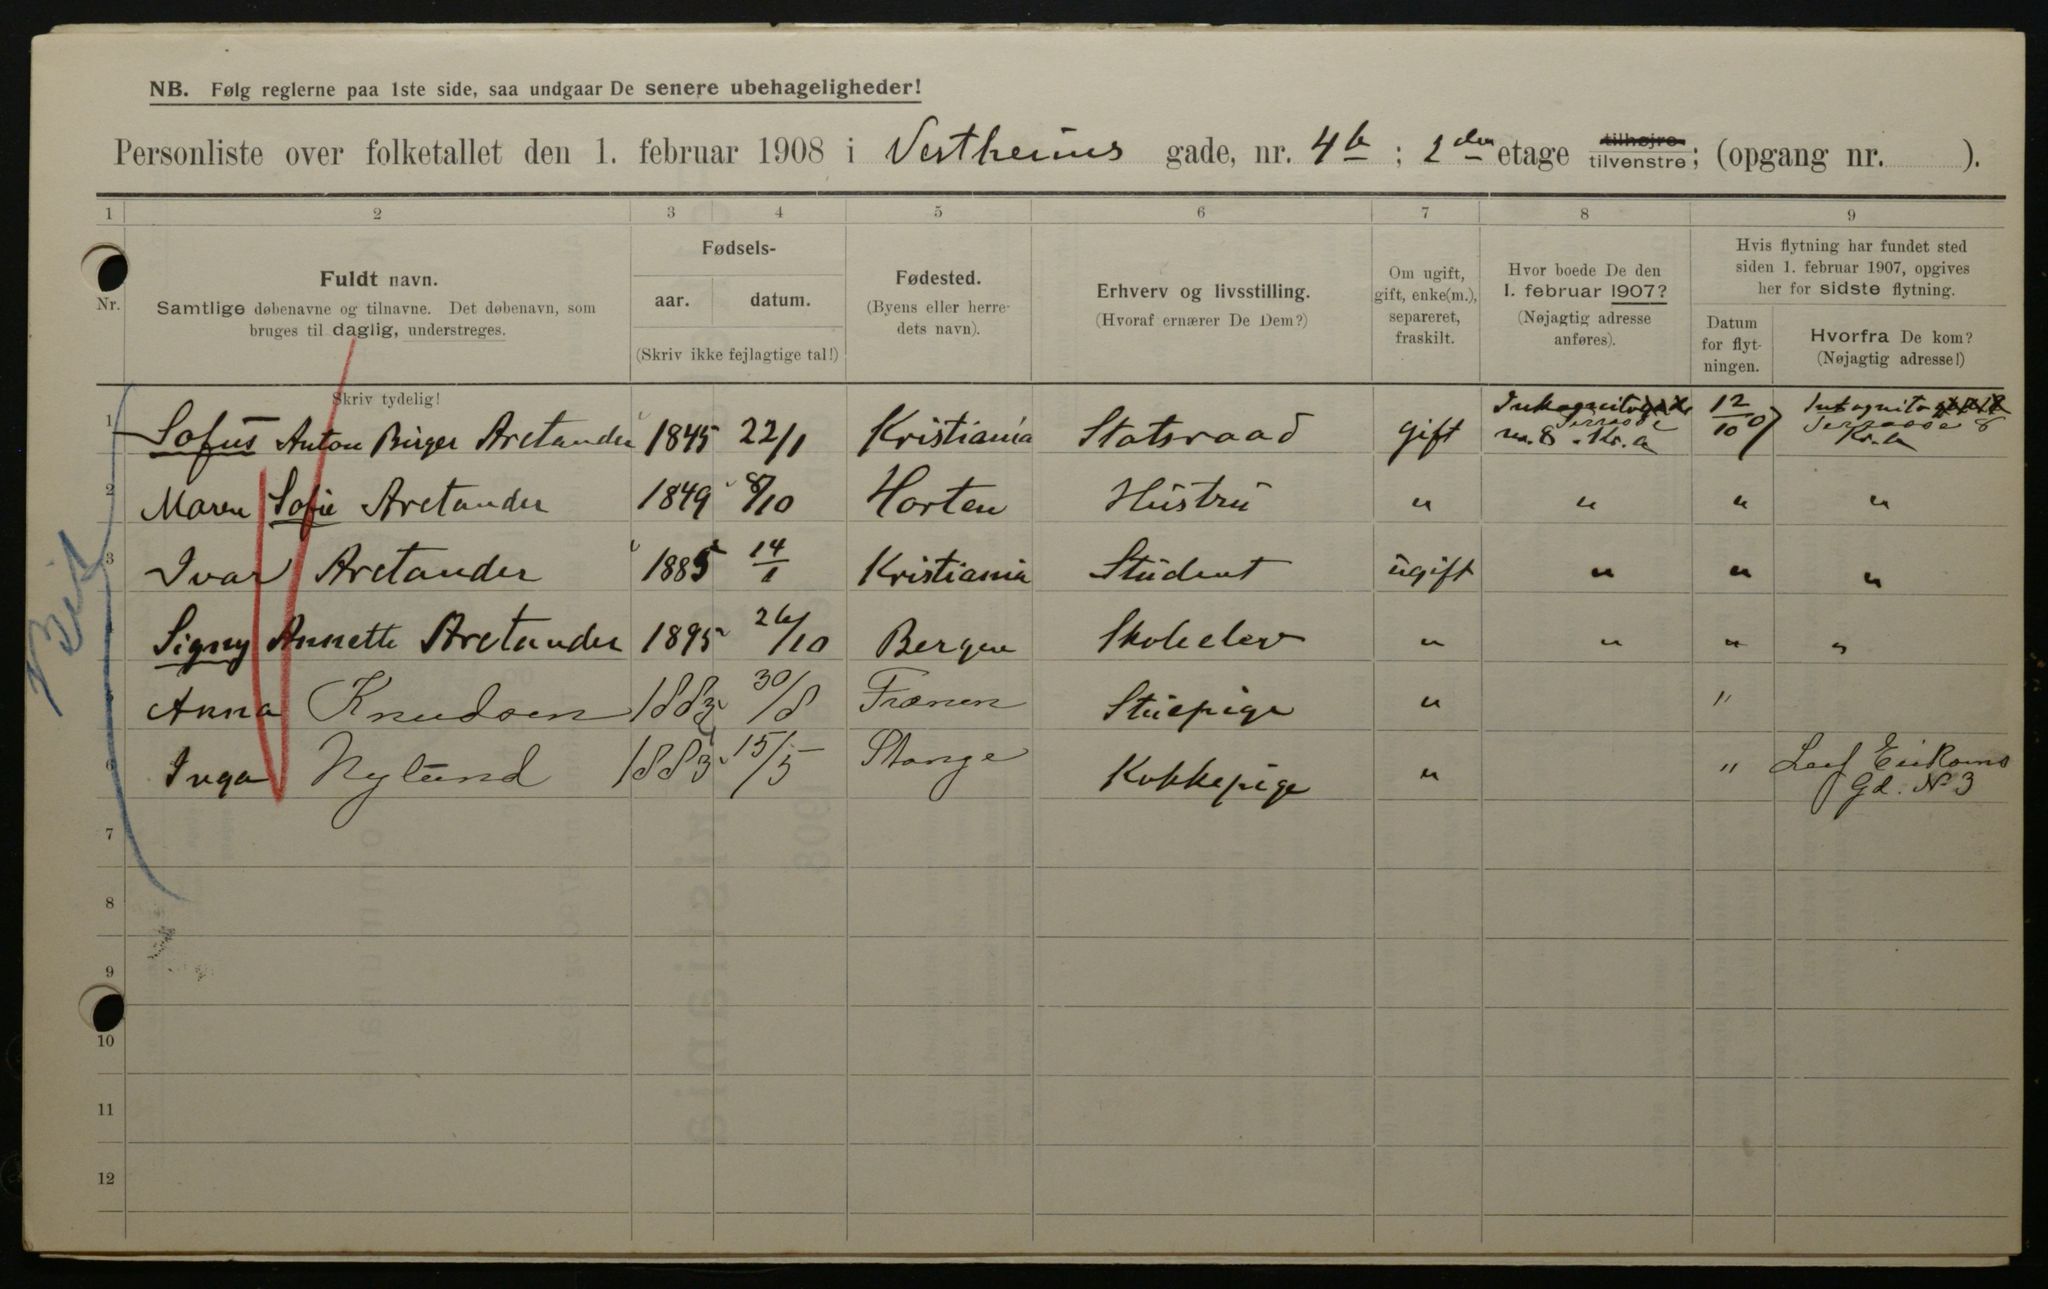 NB. Følg reglerne paa 1ste side, saa undgaar De senere ubehageligheder!
Personliste over folketallet den 1. februar 1908 i Vestheims gade, nr. 4b ; 2den etage tilhøjre tilvenstre; (opgang nr. ).
1 2 3 4 5 6 7 8 9
Nr.
Fuldt navn.
Samtlige døbenavne og tilnavne. Det døbenavn, som
bruges til daglig, understreges.
Skriv tydelig!
Fødsels-
aar. datum.
(Skriv ikke fejlagtige tal!)
Fødested.
(Byens eller herre-
dets navn).
Erhverv og livsstilling.
(Hvoraf ernærer De Dem?)
Om ugift,
gift, enke(m.),
separeret,
fraskilt.
Hvor boede De den
1. februar 1907?
(Nøjagtig adresse
anføres).
Hvis flytning har fundet sted
siden 1. februar 1907, opgives
her for sidste flytning.
Datum
for flyt-
ningen.
Hvorfra De kom?
(Nøjagtig adresse!)
1 Sofus Anton Birger Arctander 1845 22/1 Kristiania Statsraad gift Inkognito Terrasse no. 8. Kr.a 12/10 07 Inkognito Terrasse 8 Kr.a
2 Maren Sofie Arctander 1849 8/10 Horten Hustru " " " "
3 Ivar Arctander 1885 14/1 Kristiania Student ugift " " "
4 Signy Annette Arctander 1895 26/10 Bergen Skoleelev " " " "
5 Anna Knudsen 1883 30/8 Frænen Stuepige " "
6 Inga Nylund 1883 15/5 Stange Kokkepige " " Leif Eriksons Gd. No 3
7
8
9
10
11
12